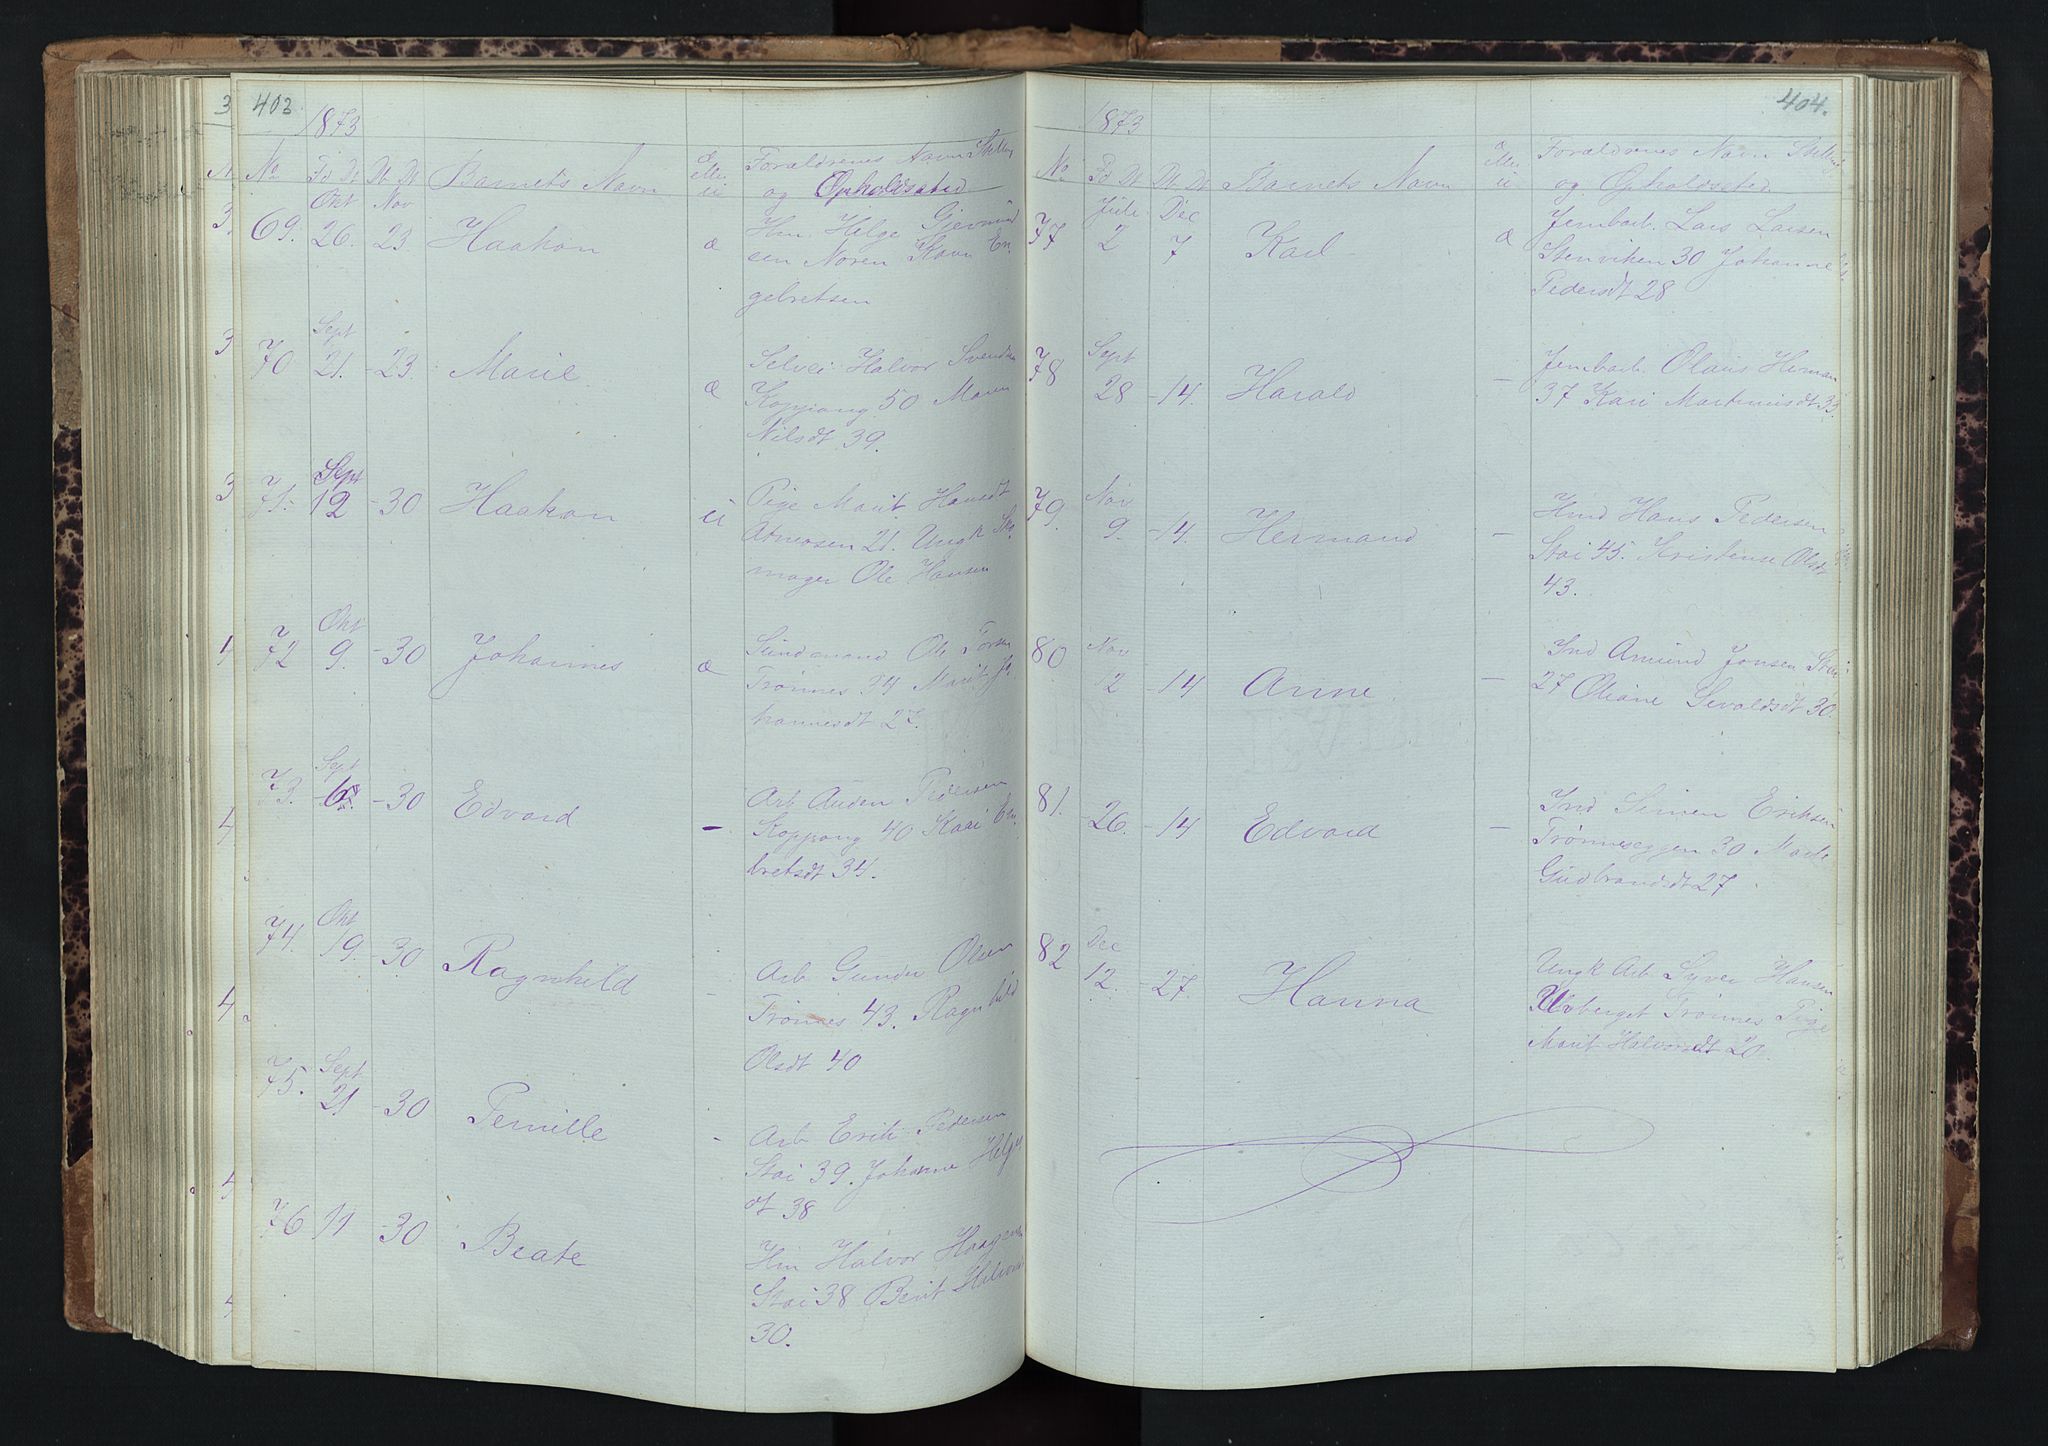 403
1873
No Fd Dt Db Dt Barnets Navn æ eller u Forældrenes Navn Stilling
og Opholdssted
Okt Nov
69. 26. 23. Haakon æ Hm. Helge
sen Noren Karn En
gebretsen
Sept
70 21. -23. Marie æ Selvei Halvor Svendsen
Koppang 50 Maren
Nilsdt 39.
Sept
71. 12 -30 Haakon u Pige Marit Hansdt
Atneosen 21. Ungk Sko
mager Ole Hansen
Okt
72 9. -30 Johannes æ Ole Torsen
Trønnes 34 Marit Jo
hannesdt 27.
Sept
73. 6. -30 Edvard - Arb Auden Pedersen
Koppang 40 Kari En
bretsdt 34.
Okt
74. 19. -30 Ragnhild - Arb Gunder Olsen
Trønnes 43. Ragnhild
Olsdt 40
Sept
75. 21 -30 Pernille - Arb Erik Pedersen
Stai 39. Johanne Helges
dt 38
76 11 -30 Beate Hm Halvor Haagensen
Stai 38 Berit Halvors
30.
404.
1873
No Fd Dt Db Dt Barnets Navn æ eller u Forældrenes Navn Stilling
og Opholdssted
Juli Dec
77 2 7 Karl æ Jernbarb. Lars Larsen
Stenviken 30 Johanne
Pedersdt 28
Sept
78 28 -14. Harald - Jernbarb. Olaus Herman
37 Kari Martinusdt 33.
Nov
79. 9. -14. Hermand - Hmd Hans Pedersen
Stai 45. Kristense Olsdt
43.
Nov
80 12 -14 Anne - Ind Amund Jonsen Stai
27 Oliane Sevaldsdt 30.
81. -26. -14 Edvard - Ind Simen Eriksen
Trønneseggen 30 Marte
Gudbrandsdt 27
Dec
82 12. -27. Hanna Ungk Arb Syver Hansen
Uvberget Trønnes Pige
Marit Halvorsdt 20.